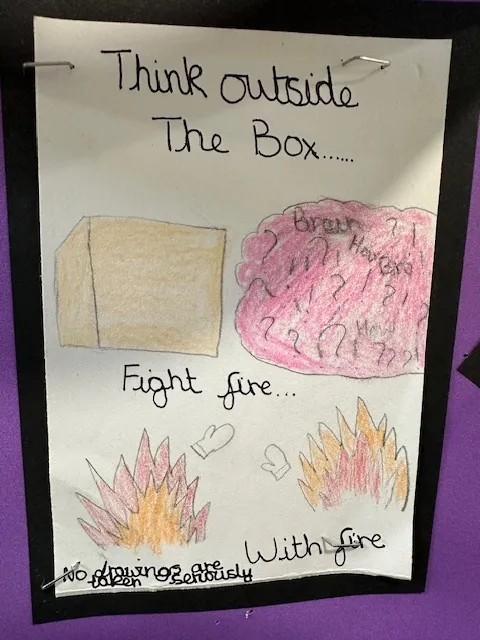 Think outside
The Box......
Brain
? ?
? !! ? ? ? ?
!! ? ? !!
? ? ? ? How
? ? ? ???
Fight fire...
With fire
No drawings are
taken seriously